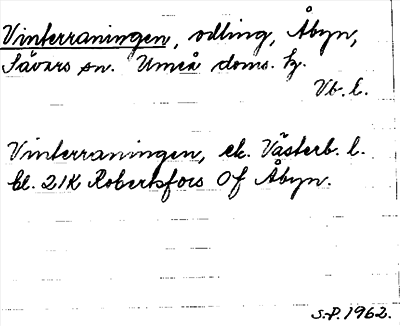 Vinterraningen, odling, Åbyn,
Sävars sn. Umeå doms. tg.
Vb. l.
Vinterraningen, ek. Västerb. l.
bl. 21K Robertsfors Of Åbyn.
S.P. 1962.